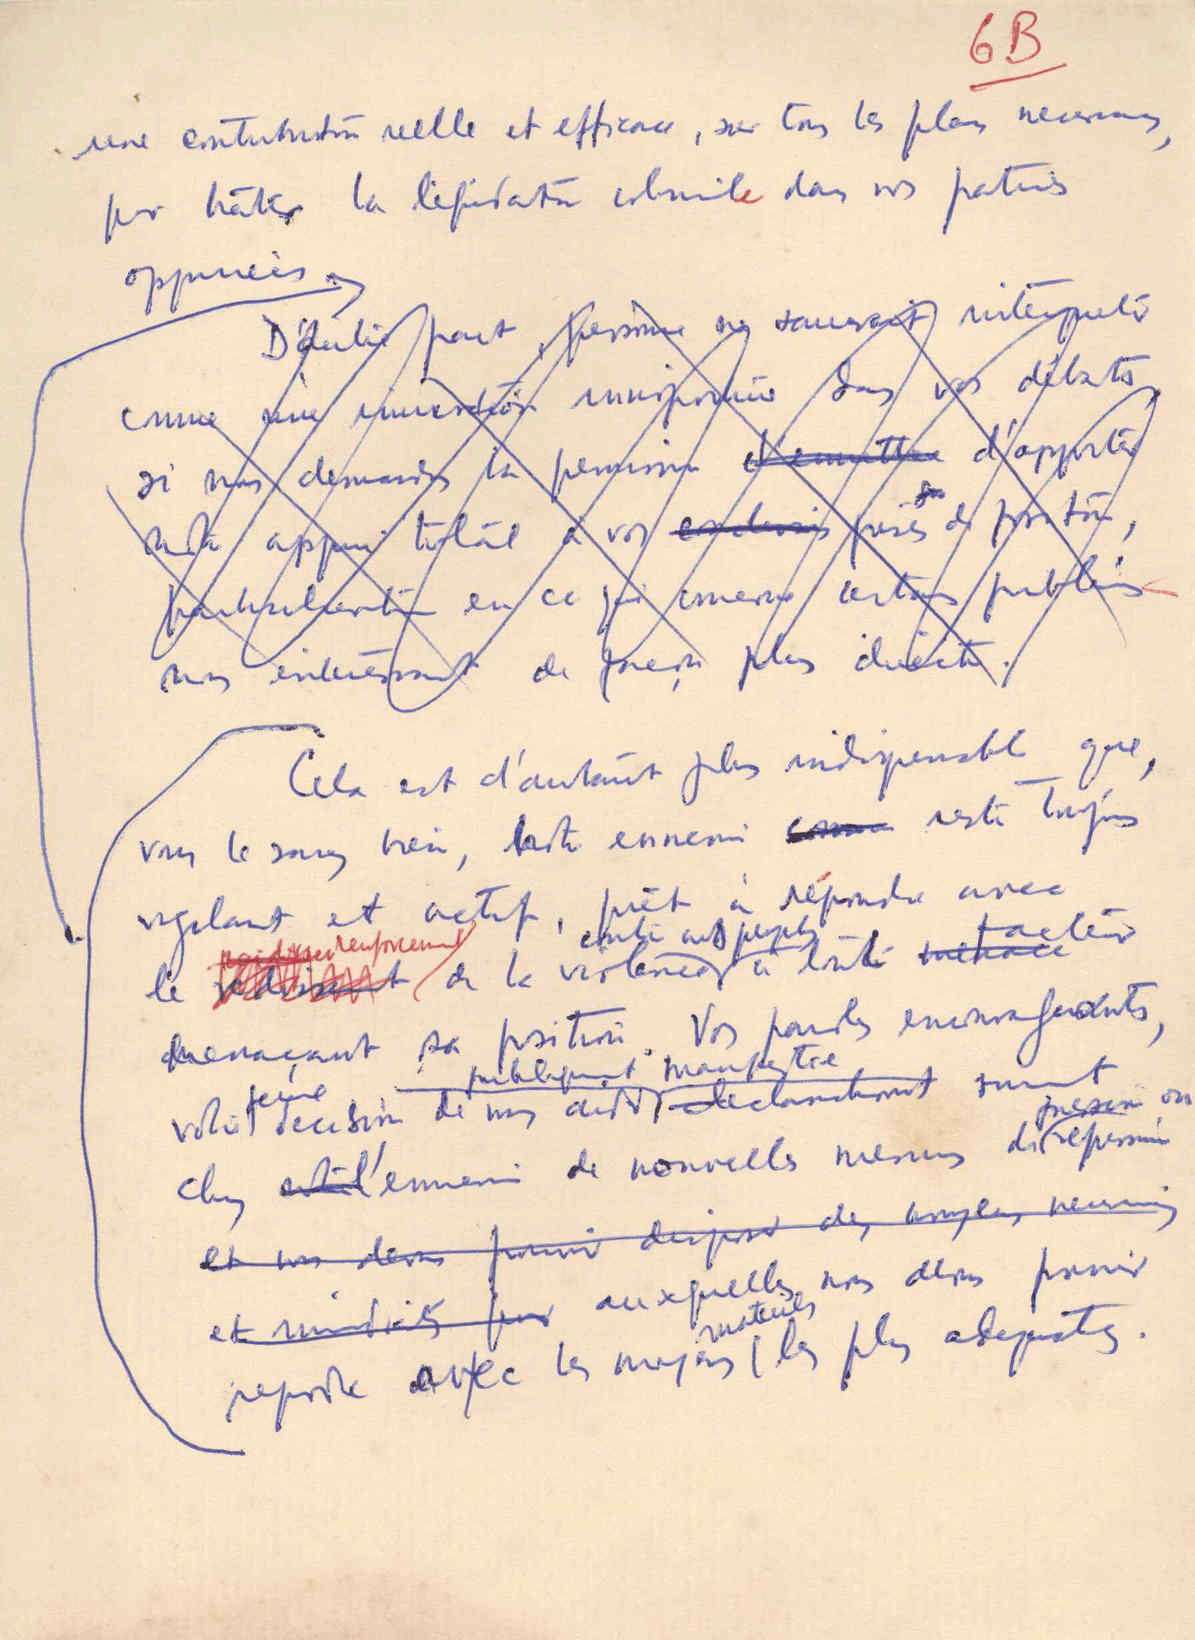 6B
une contribution réelle et efficace, sur tous les plans nécessaires,
pour hâter la liquidation coloniale dans nos patries
opprimées
D'autre part, personne ne saurait interpréter
comme une immixtion dans vos débats
si nous demandons la permission d'émettre d'apporter
notre appui total à vos prises de position,
particulièrement en ce qui concerne certains problèmes
nous intéressant de façon plus directe.
Cela est d'autant plus indispensable que,
vous le savez bien, notre ennemi comme reste toujours
vigilant et actif, prêt à répondre avec
renforcement contre nos peuples
le de la violence à toute menace action
menaçant sa position. Vos paroles encourageants,
ferme publiquement manifestée
votre décision de nous aider déclanchent
pression ou
chez l'ennemi de nouvelles mesures de répression
et nous devons pouvoir disposer des moyens nécessaires
et pour auxquelles nous devons pouvoir
matériels
répondre avec les moyens les plus adéquats.